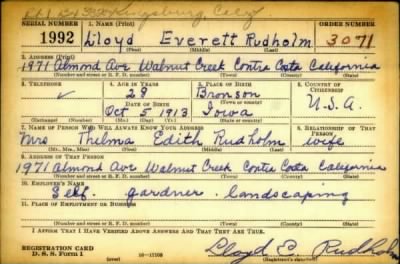 Kingsburg, Calif
SERIAL NUMBER 1. NAME (Print) ORDER NUMBER
1992 Lloyd Everett Rudholm 3071
(First) (Middle) (Last)
2. ADDRESS (Print)
1971 Almond Ave Walnut Creek Contra Costa California
(Number and street or R. F. D. number) (Town) (County) (State)
3. TELEPHONE 4. AGE IN YEARS 5. PLACE OF BIRTH 6. COUNTRY OF CITIZENSHIP
28 Bronson
DATE OF BIRTH (Town or county)
Oct 5 1913 Iowa U.S.A.
(Exchange) (Number) (Mo.) (Day) (Yr.) (State or country)
7. NAME OF PERSON WHO WILL ALWAYS KNOW YOUR ADDRESS 8. RELATIONSHIP OF THAT PERSON
Mrs Thelma Edith Rudholm wife
(Mr., Mrs., Miss) (First) (Middle) (Last)
9. ADDRESS OF THAT PERSON
1971 Almond Ave Walnut Creek Contra Costa California
(Number and street or R. F. D. number) (Town) (County) (State)
10. EMPLOYER'S NAME
Self. gardner. landscaping
11. PLACE OF EMPLOYMENT OR BUSINESS
(Number and street or R. F. D. number) (Town) (County) (State)
I AFFIRM THAT I HAVE VERIFIED ABOVE ANSWERS AND THAT THEY ARE TRUE.
REGISTRATION CARD
D. S. S. Form 1 Lloyd E. Rudholm
(Registrant's signature)